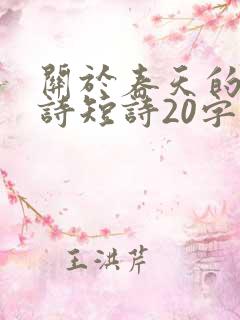 關於春天的
詩短詩20字
王洪芹